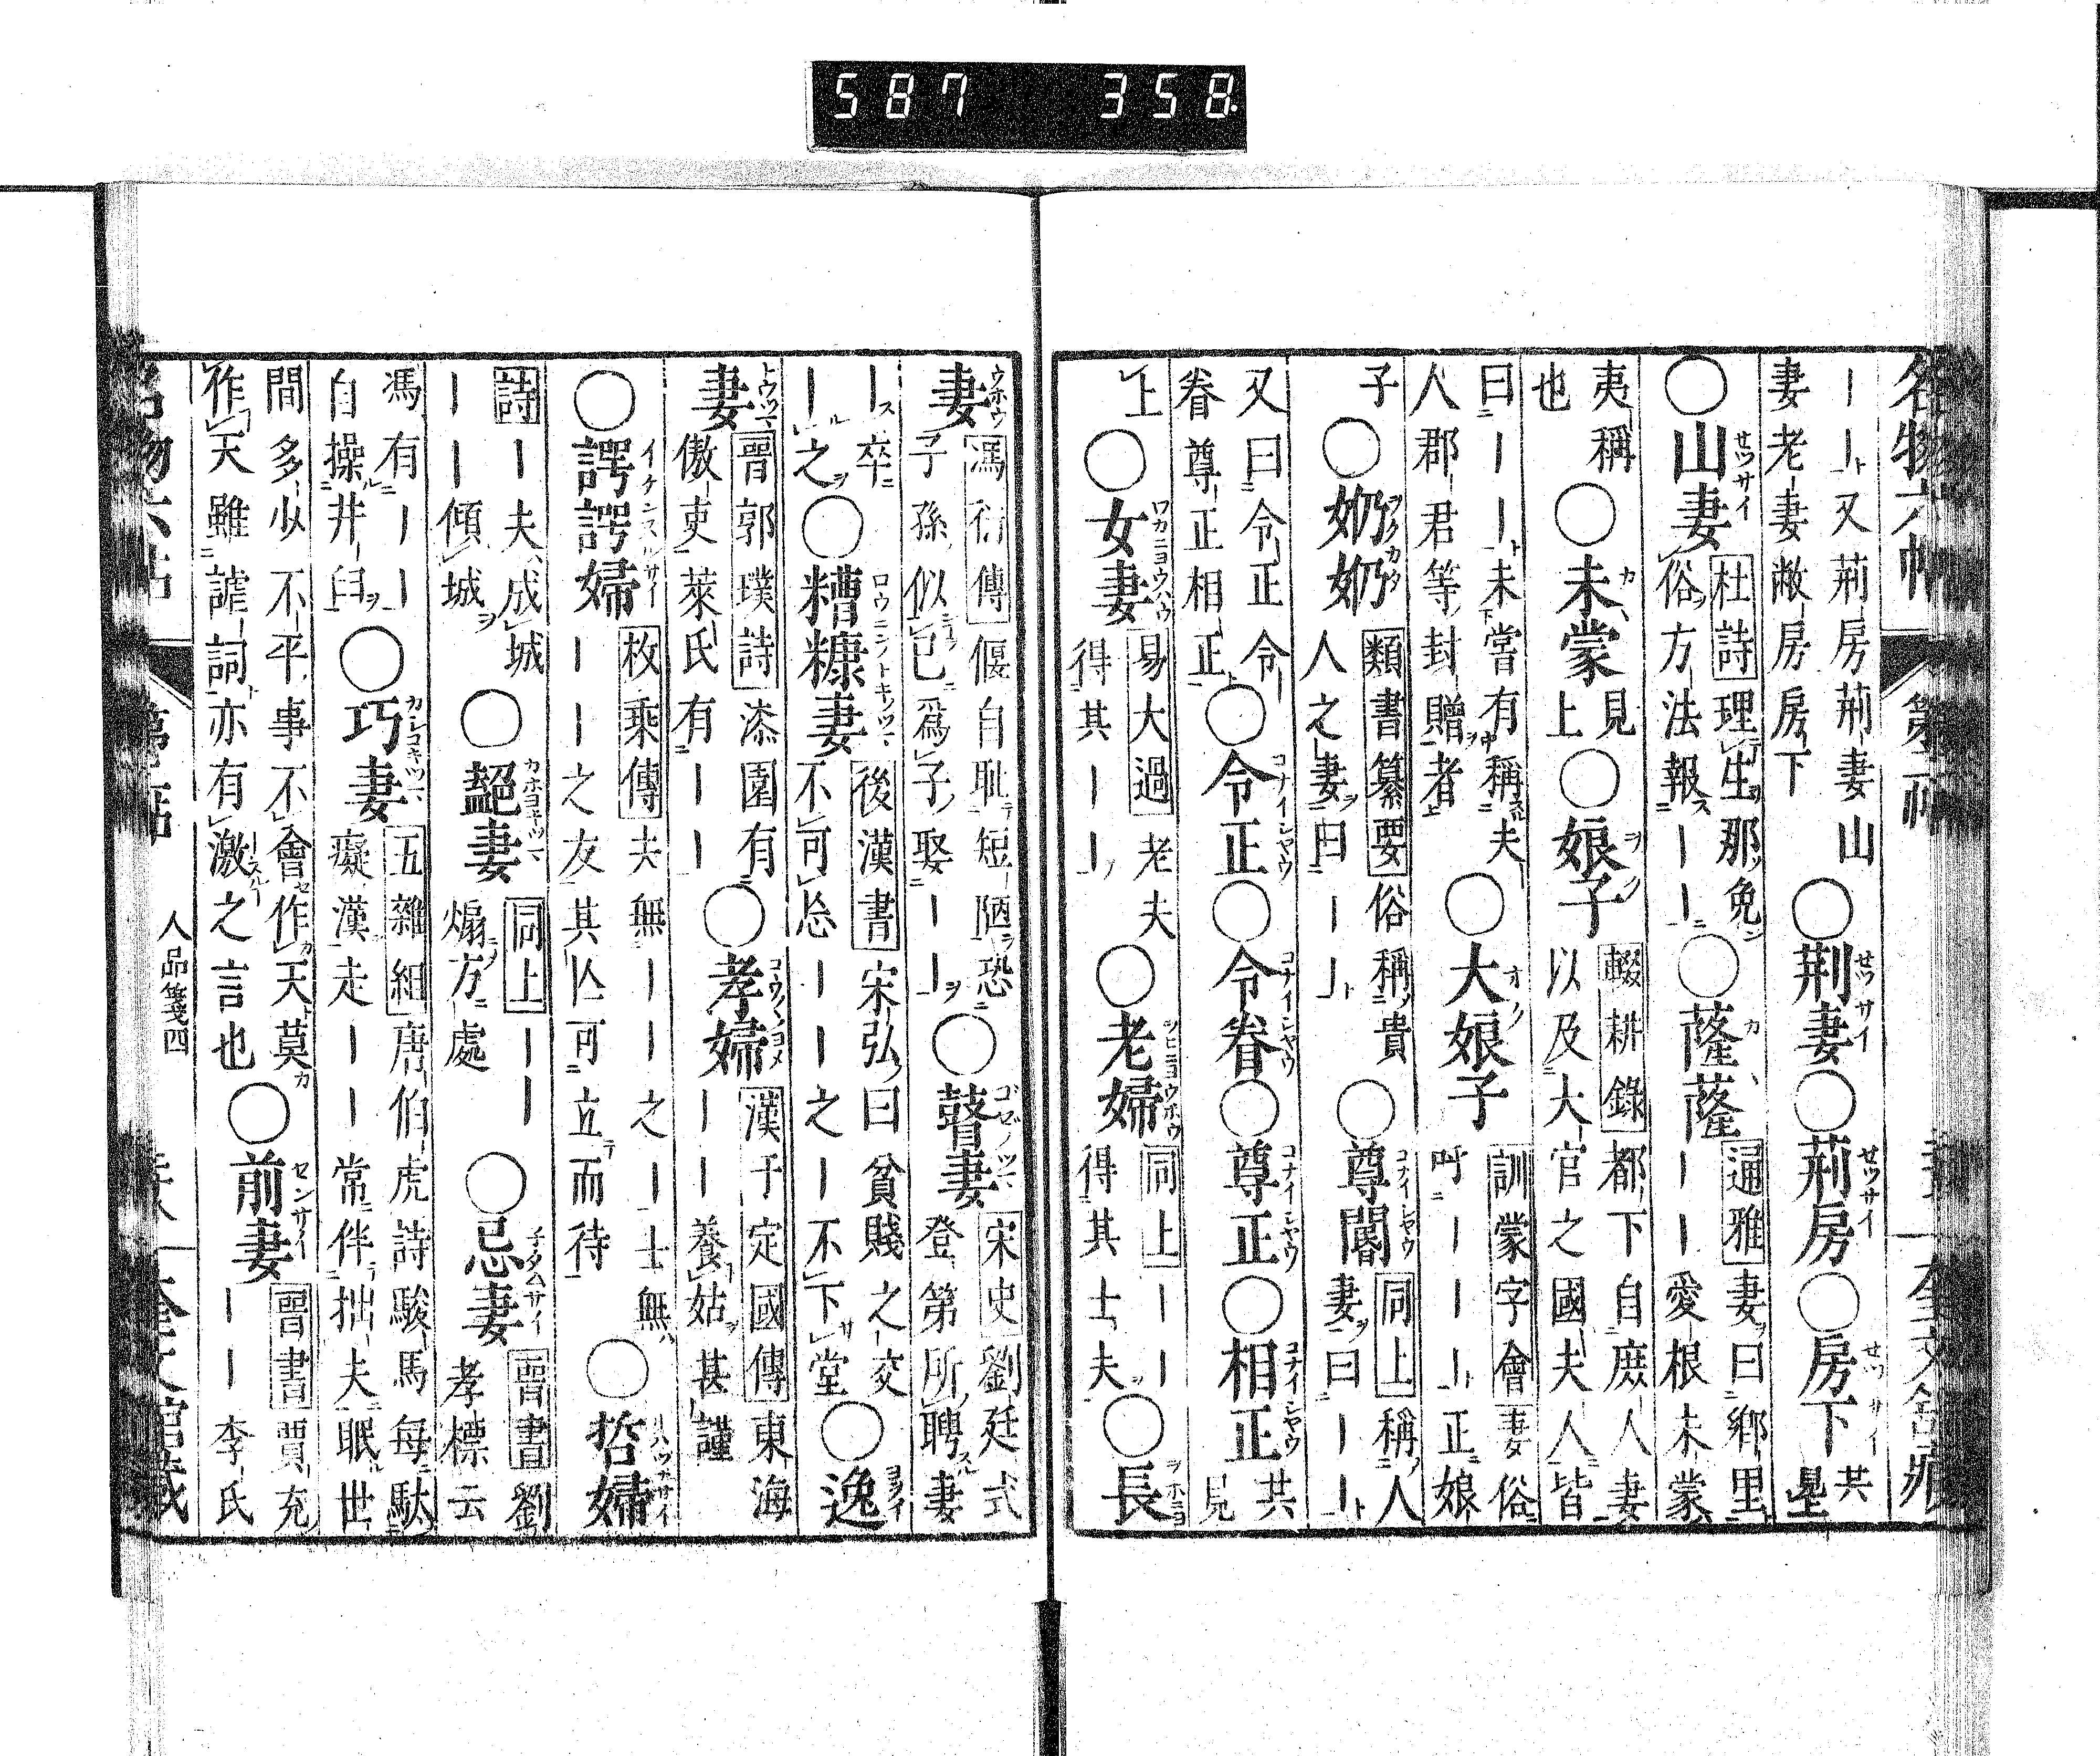 名物六帖 第二帖 奎文舘藏
丨丨又荊房荊妻山
妻老妻敝房房下
○荆妻○荊房○房下共
○山妻 杜詩 理生那免
俗方法報丨丨
○薩薩 通雅 妻曰鄉里
丨丨愛根未蒙
夷稱
也
○未蒙 見
上
○娘子 輟耕錄 都下自庶人妻
以及大官之國夫人皆
曰丨丨未當有稱夫
人郡君等封贈者
○大娘子 訓蒙字會 妻俗
呼丨丨丨正娘
子
○妳妳 類書纂要 俗稱貴
人之妻曰丨丨
○尊閽 同上 稱人
妻曰丨丨
又曰令正令
眷尊正相正
○令正○令眷○尊正○相正 共
見
上
○女妻 易大過 老夫
得其丨丨
○老婦 同上 丨丨
得其士夫
○長
妻 馮衍傳 偃自耻短陋恐
子孫似已爲子娶丨丨
○瞽妻 宋史 劉廷式
登第所聘妻
丨卒
丨之
○糟糠妻 後漢書 宋弘曰貧賤之交
不可忘丨丨之丨不下堂
○逸
妻 晉郭璞詩 漆園有
傲吏萊氏有丨丨
○孝婦 漢于定國傳 東海
丨丨養姑甚謹
○諤諤婦 枚乘傳 夫無丨丨之丨士無
丨丨之友其亾可立而待
○哲婦
詩 丨夫成城
丨丨傾城
○豔妻 同上 丨丨
煽方處
○忌妻 晉書 劉
孝標云
馮有丨丨
自操井臼
○巧妻 五雜組 唐伯虎詩駿馬每馱
癡漢走丨丨常伴拙夫眠世
間多少不平事不會作天莫
作天雖謔詞亦有激之言也
○前妻 晉書 賈充
丨丨李氏
名物六帖 第二帖 人品箋四 奎文舘藏
587 358.